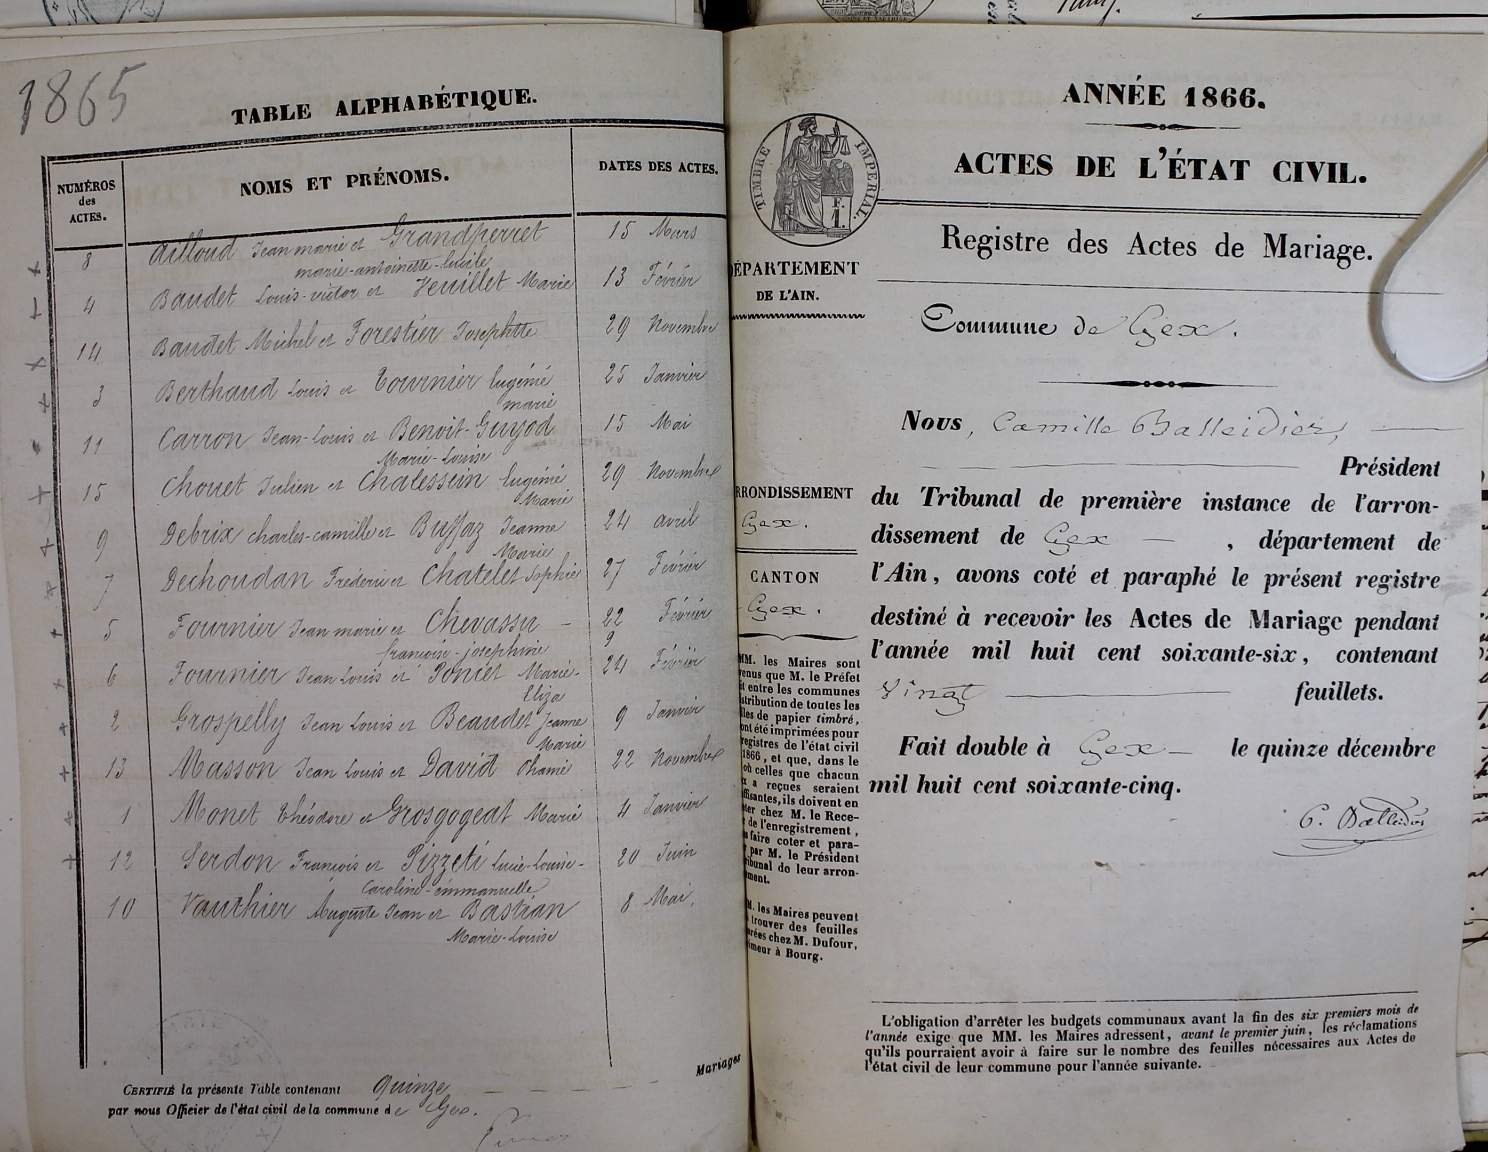 1865
TABLE ALPHABÉTIQUE.
NUMÉROS des ACTES.
NOMS ET PRÉNOMS.
DATES DES ACTES.
8 Ailloud Jean marie et Grandperret 15 Mars
marie-antoinette-lucile
4 Baudet Louis-victor et Veuillet Marie 13 Février
14 Baudet Michel et Forestier Josephtte 29 Novembre
3 Berthaud Louis et Tournier Eugénie 25 Janvier
marie
11 Carron Jean-Louis et Benoit-Guyod 15 Mai
Marie-Louise
15 Chouet Julien et Chatessein Eugénie 29 Novembre
Marie
9 Debrix charles-camille et Buffaz Jeanne 24 avril
Marie
7 Dechoudan Fréderic et Chatelet Sophie 27 Février
5 Fournier Jean marie et Chevassu — 22 Février
françoise-josephine 9
6 Fournier Jean Louis et Poncet Marie- 24 Février
Eliza
2 Grospelly Jean Louis et Beaudet Jeanne 9 Janvier
Marie
13 Masson Jean Louis et David Phamie 22 Novembre
1 Monet théodore et Grosgogeat Marie 4 Janvier
12 Serdon François et Pizzeti Lucie-Louise- 20 Juin
Caroline-emmanuelle
10 Vauthier Auguste Jean et Bastian 8 Mai.
Marie-Louise
Mariages
CERTIFIÉ la présente Table contenant quinze
par nous Officier de l'état civil de la commune de Gex.
ANNÉE 1866.
ACTES DE L'ÉTAT CIVIL.
TIMBRE IMPÉRIAL.
Registre des Actes de Mariage.
DÉPARTEMENT
DE L'AIN.
Commune de Gex.
Nous, Camille Balleidier,
Président
du Tribunal de première instance de l'arron-
dissement de Gex — , département de
l'Ain, avons coté et paraphé le présent registre
destiné à recevoir les Actes de Mariage pendant
l'année mil huit cent soixante-six, contenant
Vingt feuillets.
Fait double à Gex — le quinze décembre
mil huit cent soixante-cinq.
C. Balleidier
RRONDISSEMENT
Gex.
CANTON
Gex.
MM. les Maires sont
venus que M. le Préfet
t entre les communes
stribution de toutes les
lles de papier timbré,
ont été imprimées pour
registres de l'état civil
1866, et que, dans le
où celles que chacun
x a reçues seraient
ffisantes, ils doivent en
eter chez M. le Rece-
r de l'enregistrement,
s faire coter et para-
par M. le Président
ribunal de leur arron-
ment.
M. les Maires peuvent
trouver des feuilles
rées chez M. Dufour,
imeur à Bourg.
L'obligation d'arrêter les budgets communaux avant la fin des six premiers mois de
l'année exige que MM. les Maires adressent, avant le premier juin, les réclamations
qu'ils pourraient avoir à faire sur le nombre des feuilles nécessaires aux Actes de
l'état civil de leur commune pour l'année suivante.